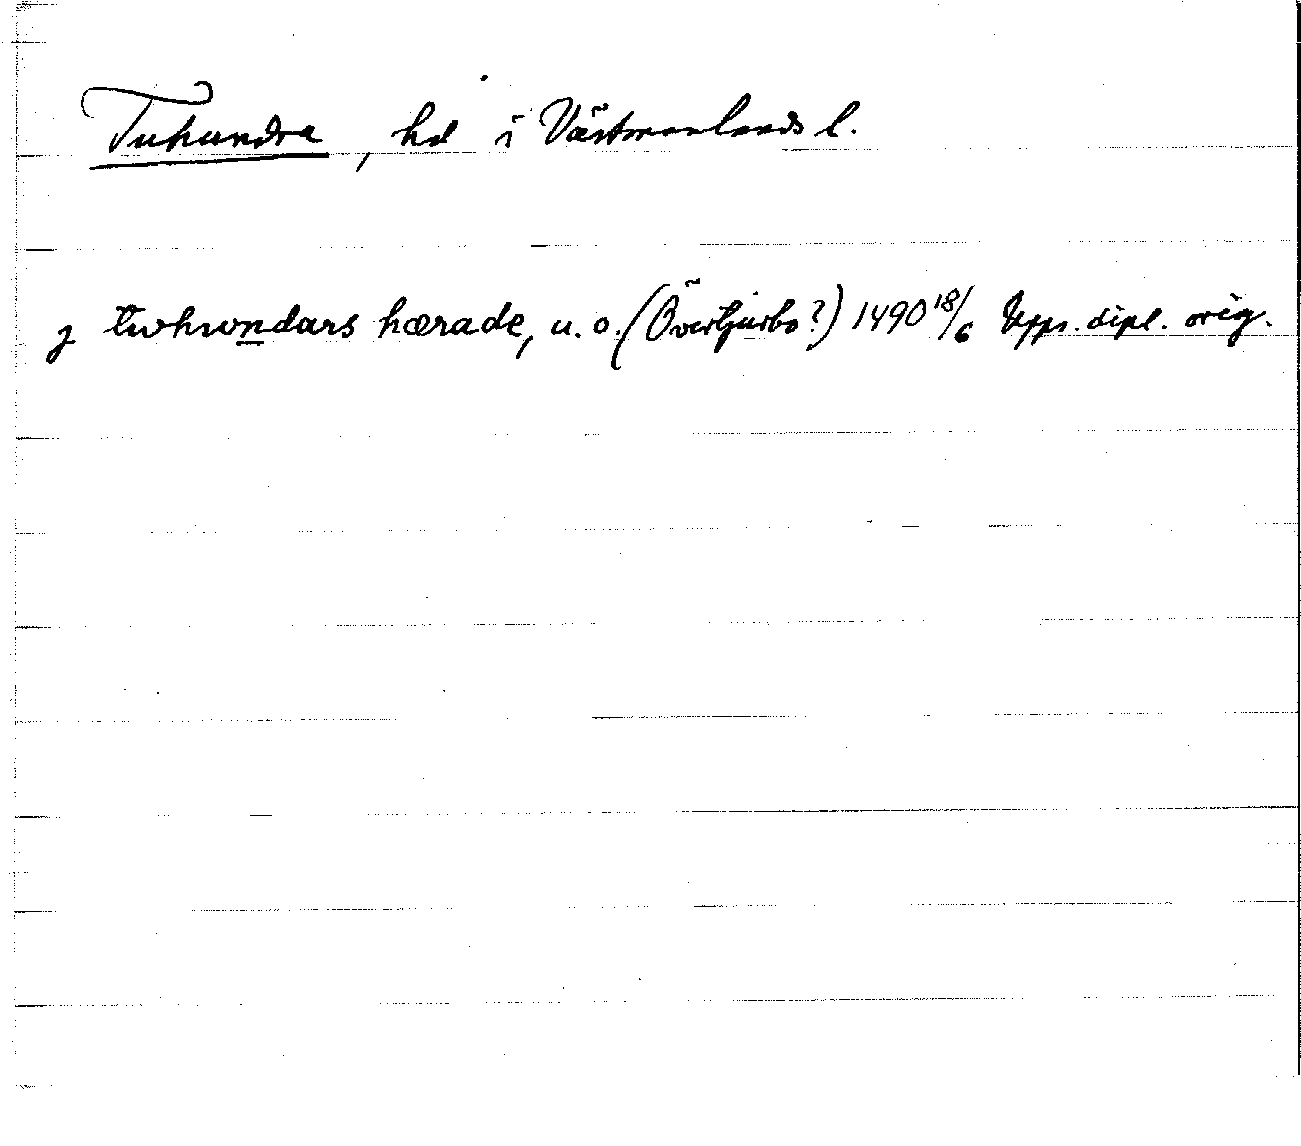 Tuhundra, hd i Västmanlands l.
j twhwndars hærade, u. o. (Övertjurbo?) 1490 18/6 Upps. dipl. orig.